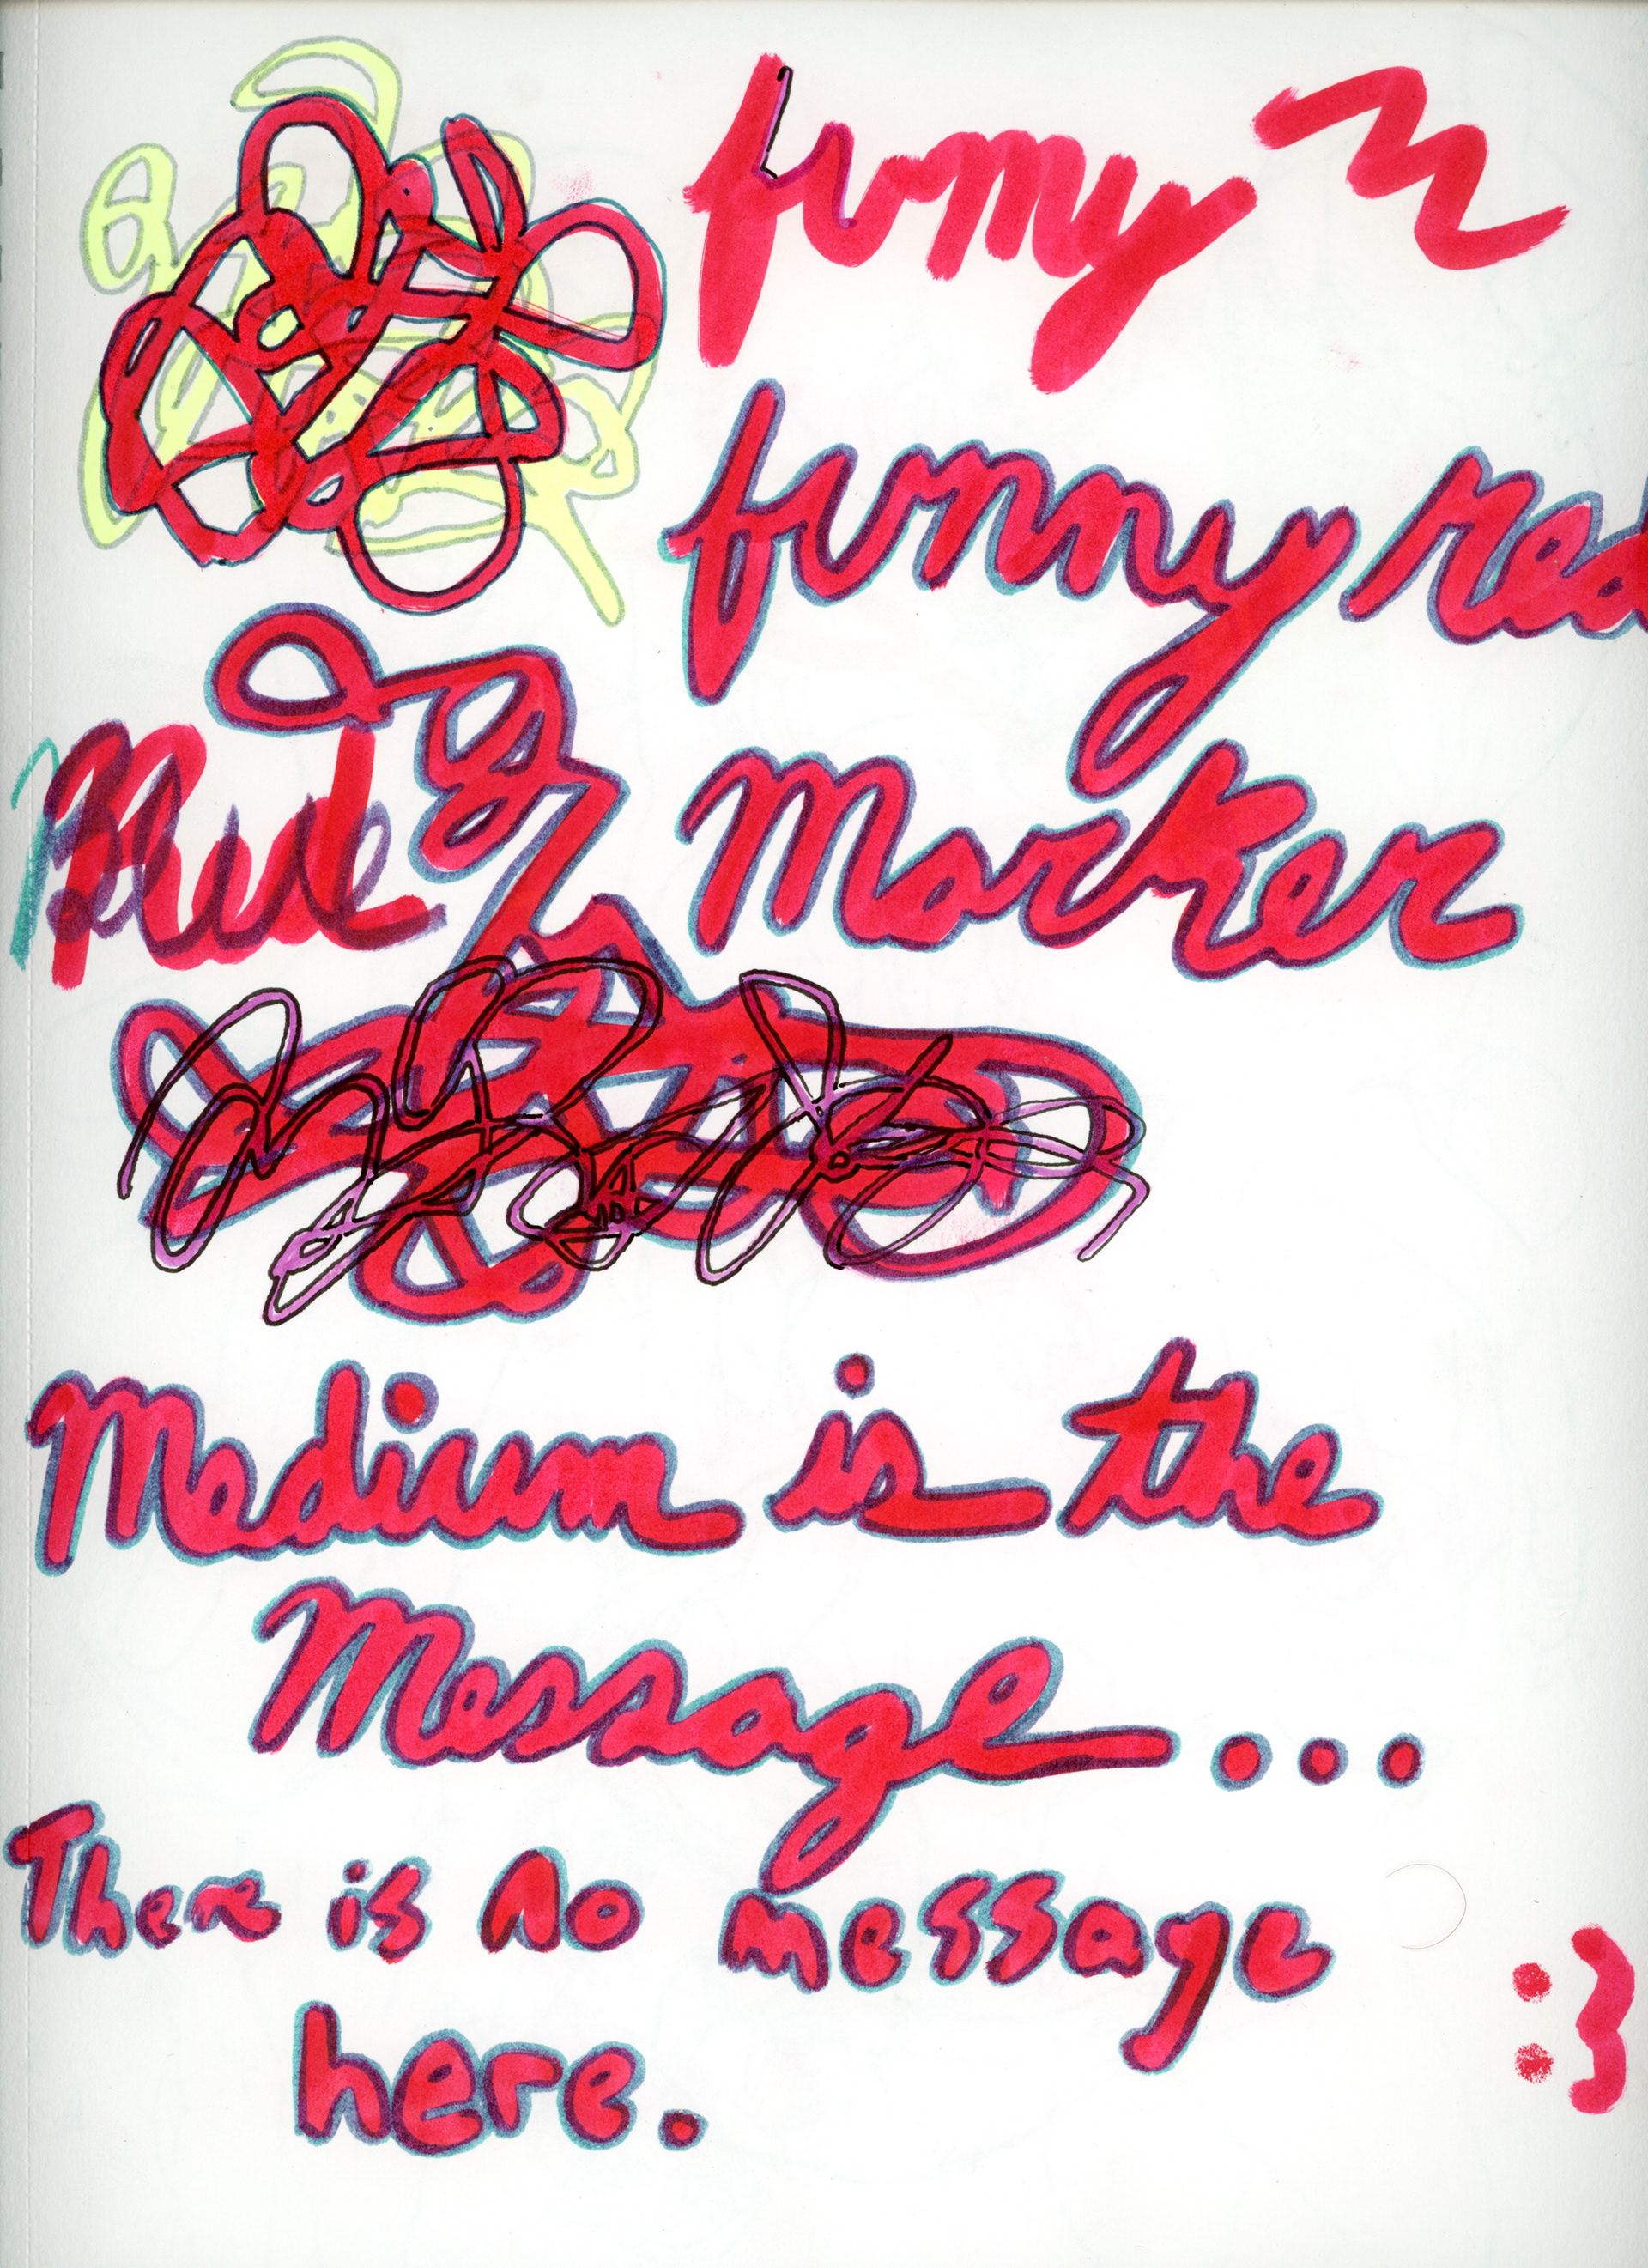 funny
funny red
Marker
Medium is the
Message...
There is no message
here.
:3